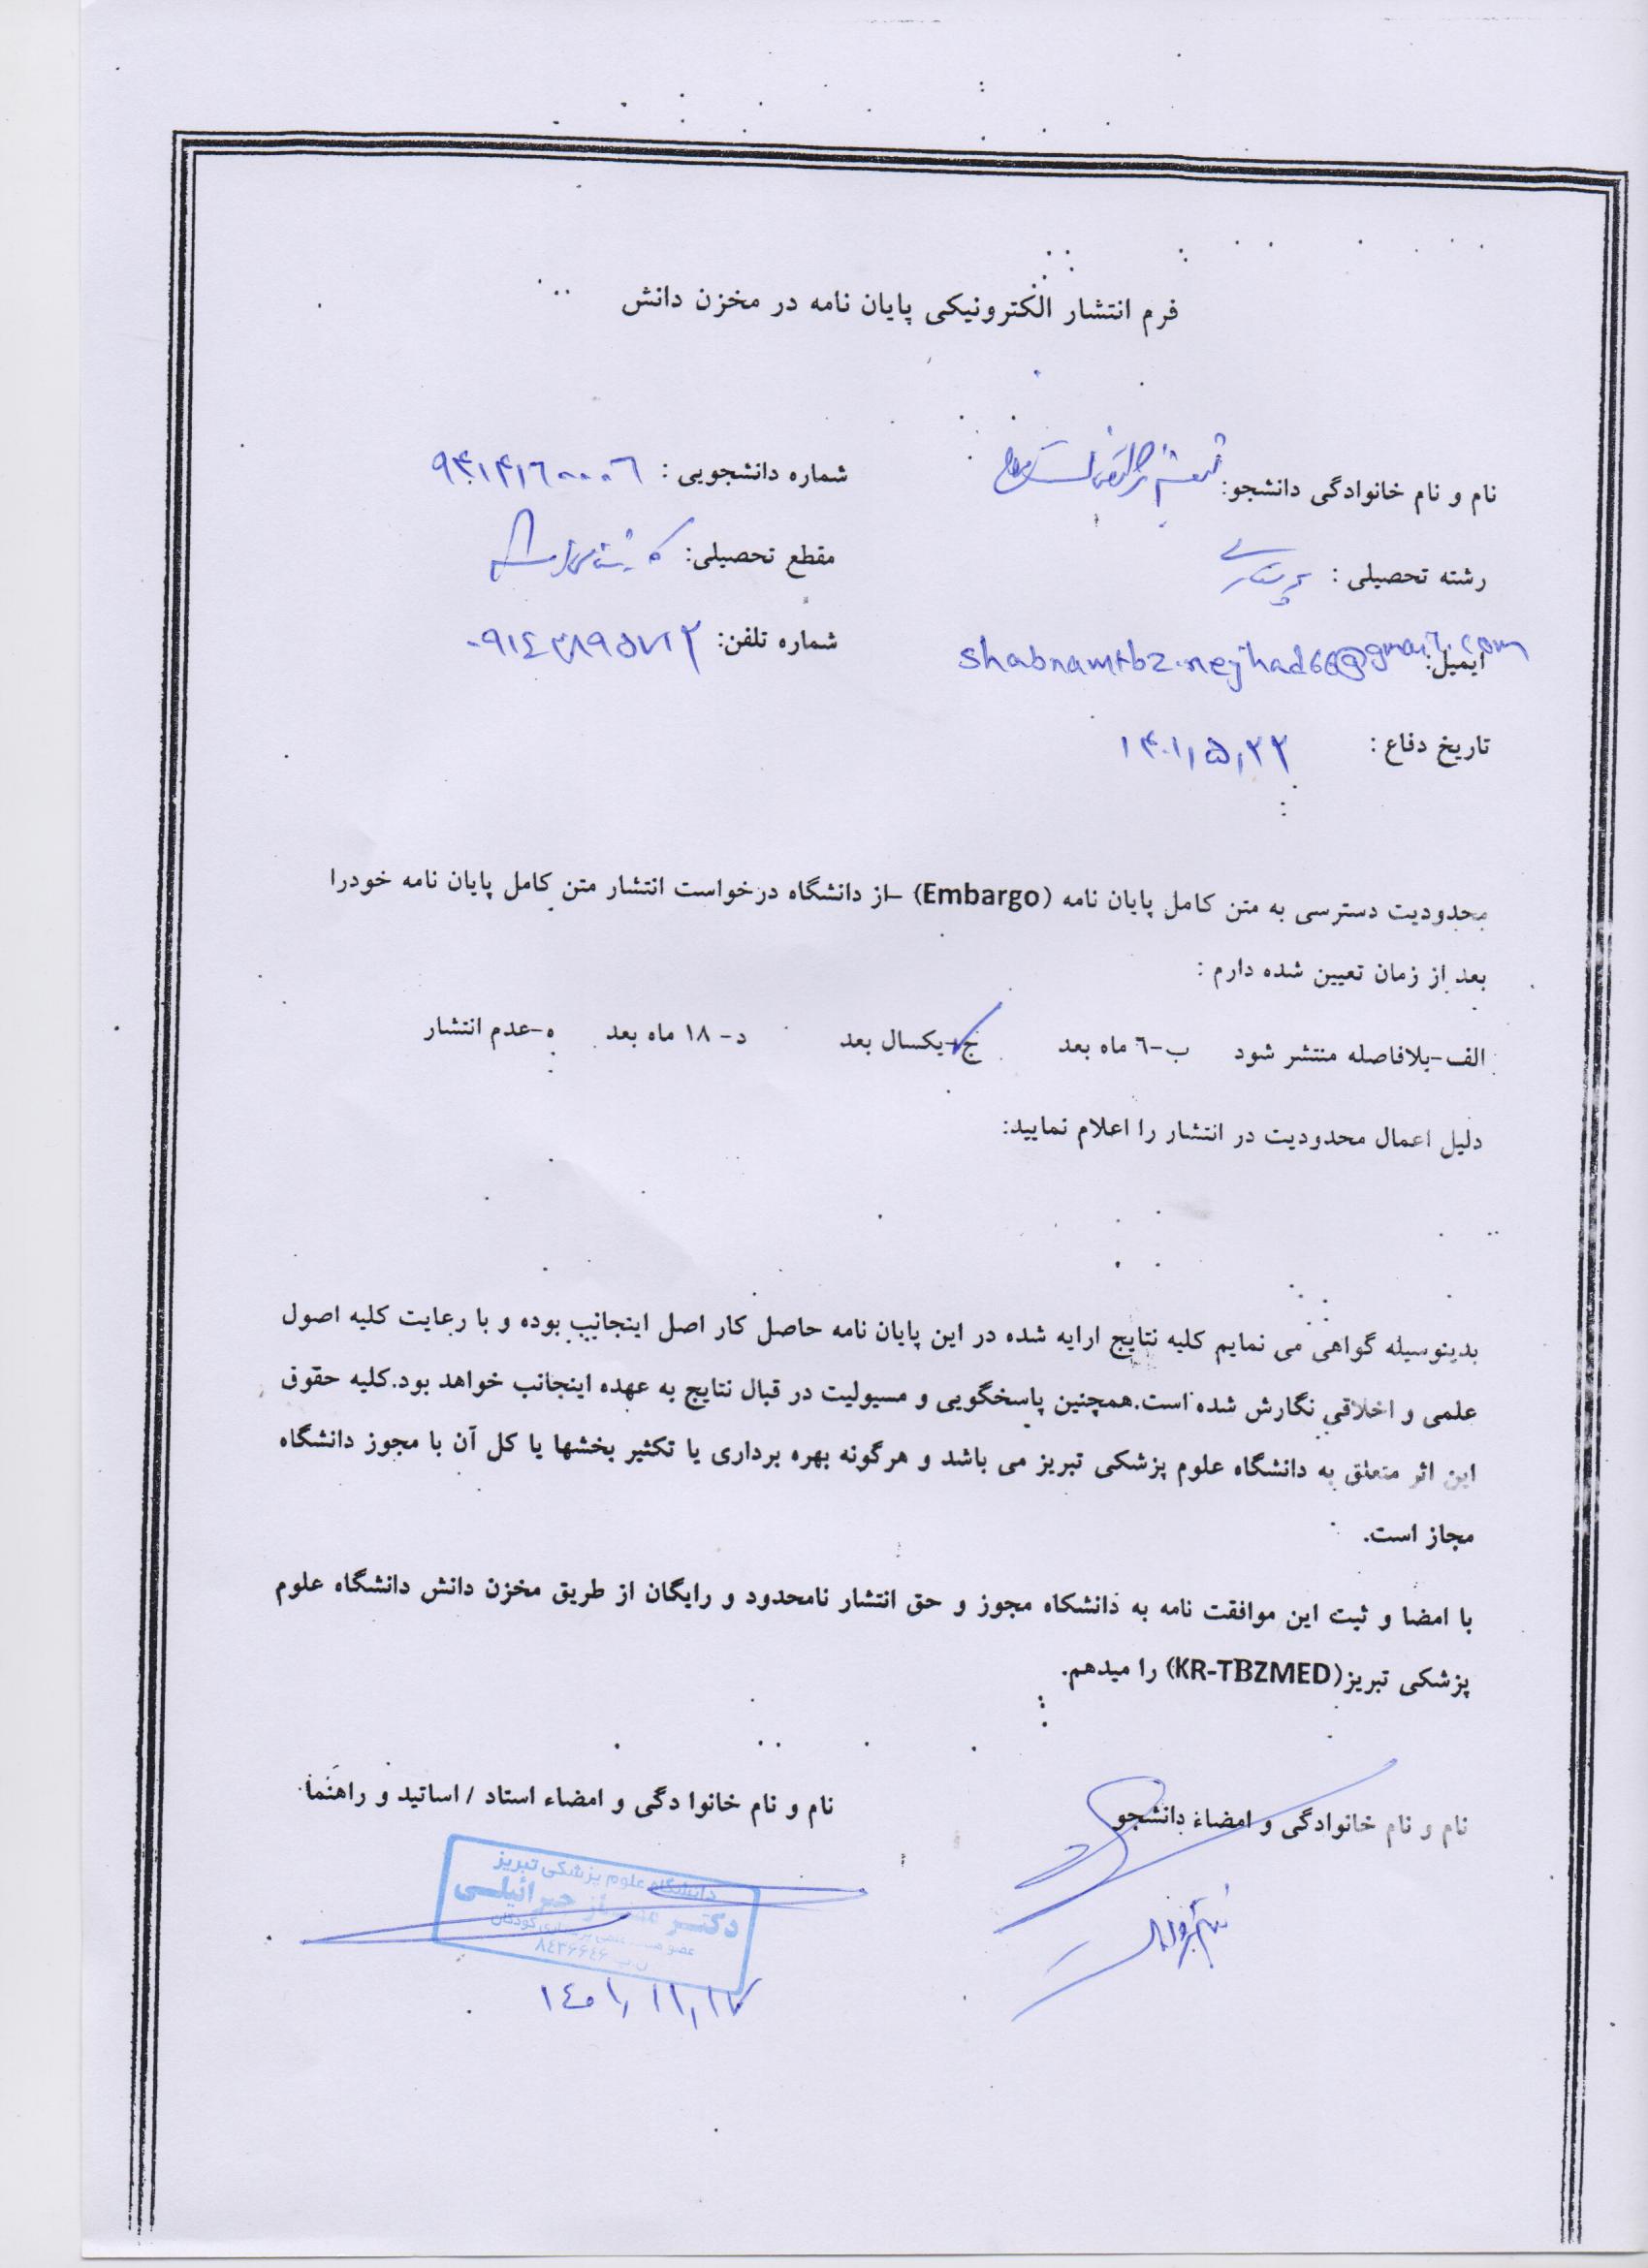 فرم انتشار الکترونیکی پایان نامه در مخزن دانش
نام و نام خانوادگی دانشجو: شماره دانشجویی : ۹۴۱۴۱٦۰۰۰٦
رشته تحصیلی : پرستاری مقطع تحصیلی:
ایمیل: shabnamtbz.nejhad66@gmail.com شماره تلفن:
تاریخ دفاع : ۱۴۰۱,۵,۲۲
محدودیت دسترسی به متن کامل پایان نامه (Embargo) –از دانشگاه درخواست انتشار متن کامل پایان نامه خودرا
بعد از زمان تعیین شده دارم :
الف-بلافاصله منتشر شود ب-٦ ماه بعد ج-یکسال بعد د- ۱۸ ماه بعد ه-عدم انتشار
دلیل اعمال محدودیت در انتشار را اعلام نمایید:
بدینوسیله گواهی می نمایم کلیه نتایج ارایه شده در این پایان نامه حاصل کار اصل اینجانب بوده و با رعایت کلیه اصول
علمی و اخلاقی نگارش شده است.همچنین پاسخگویی و مسیولیت در قبال نتایج به عهده اینجانب خواهد بود.کلیه حقوق
این اثر متعلق به دانشگاه علوم پزشکی تبریز می باشد و هرگونه بهره برداری یا تکثیر بخشها یا کل آن با مجوز دانشگاه
مجاز است.
با امضا و ثبت این موافقت نامه به دانشکاه مجوز و حق انتشار نامحدود و رایگان از طریق مخزن دانش دانشگاه علوم
پزشکی تبریز(KR-TBZMED) را میدهم.
نام و نام خانوادگی و امضاء دانشجو نام و نام خانوا دگی و امضاء استاد / اساتید و راهنما
دانشگاه علوم پزشکی تبریز
دکتر جبرائیلی
۱٤۰۱,۱۱,۱۷